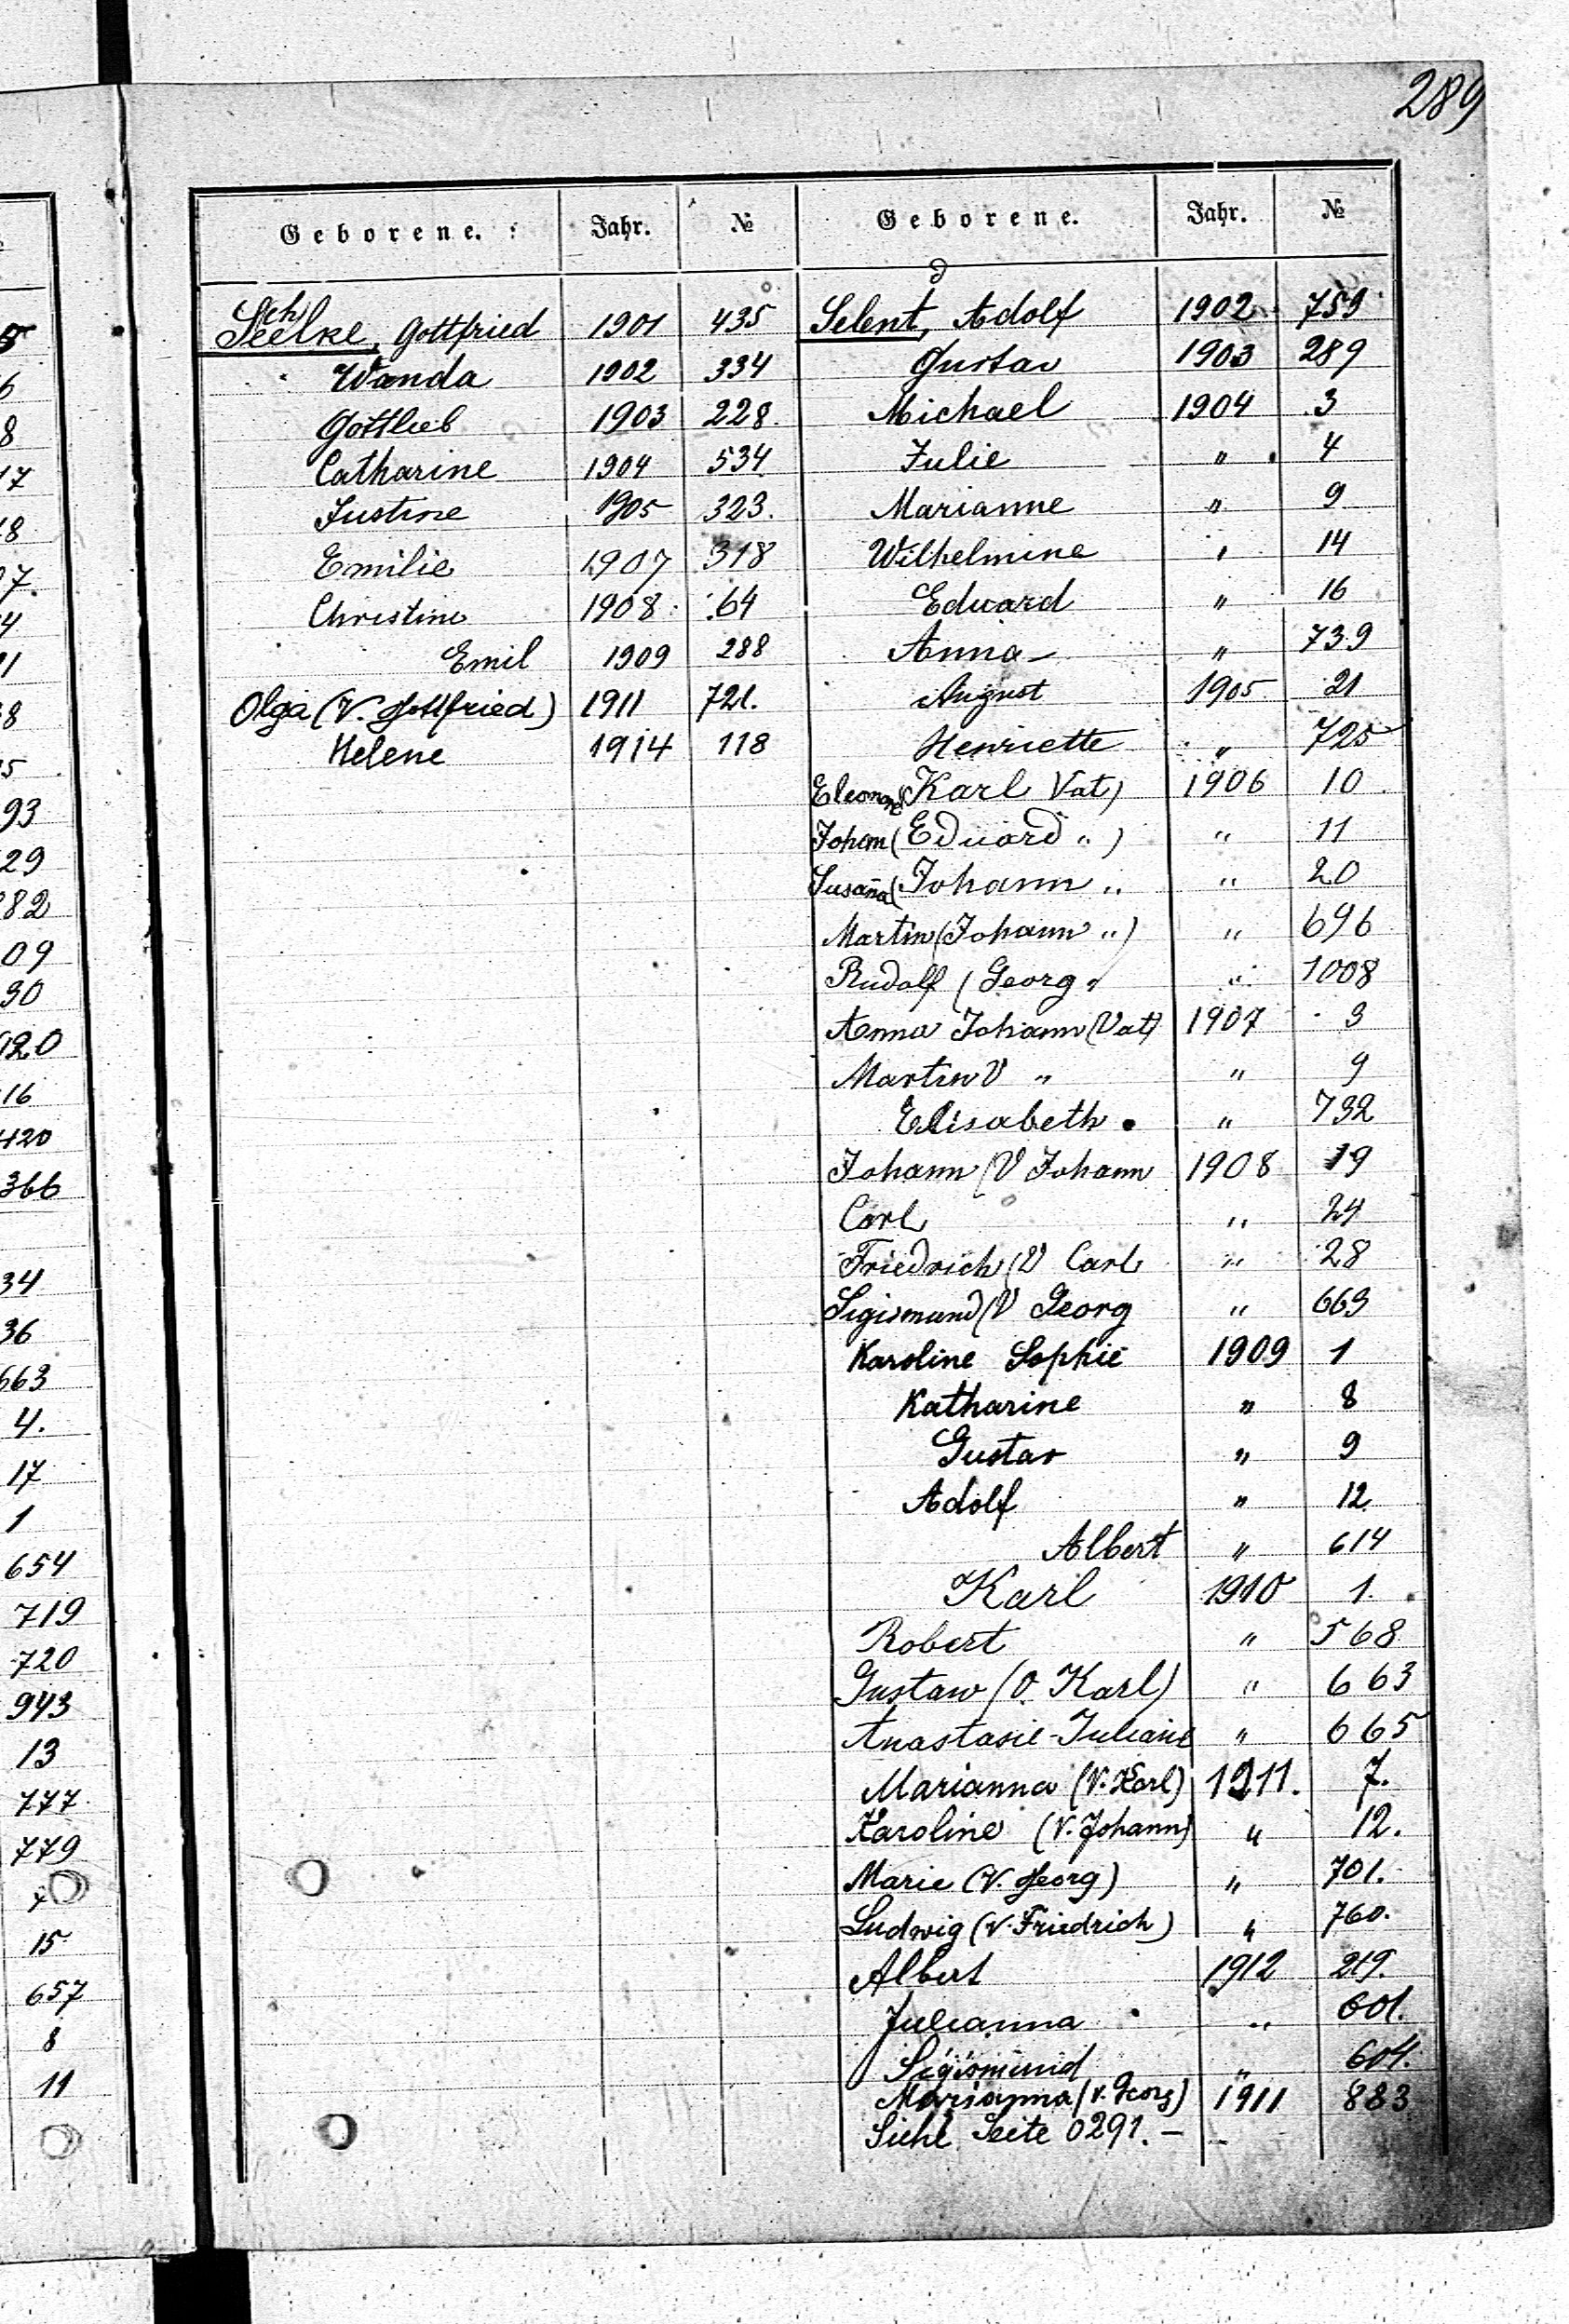 289
Geborene. Jahr. №
Seelke, Gottfried 1901 435
eh
Wanda 1902 334
Gottlieb 1903 228.
Catharine 1904 534
Justine 1905 323.
Emilie 1907 318
Christine 1908 64
Emil 1909 288
Olga (V. Gottfried) 1911 721.
Helene 1914 118
Geborene. Jahr. №
d
Selent, Adolf 1902 759
Gustav 1903 289
Michael 1904 3
Julie " 4
Marianne " 9
Wilhelmine " 14
Eduard " 16
Anna " 739
August 1905 21
Henriette " 725
Eleonore (Karl Vat) 1906 10
Johann (Eduard ") " 11
Susaña (Johann " " 20
Martin (Johann ") " 696
Rudolf (Georg " " 1008
Anna Johann (Vat) 1907 3
Martin V " " 9
Elisabeth " 732
Johann (V Johann 1908 19
Carl " 24
Friedrich (V Carl " 28
Sigismund (V Georg " 663
Karoline Sophie 1909 1
Katharine " 8
Gustav " 9
Adolf " 12
Albert " 614
Karl 1910 1.
Robert " 568
Gustaw (V. Karl) " 663
Anastasie-Juliane " 665
Marianna (V. Karl) 1911. 7.
Karoline (V. Johann) " 12.
Marie (V. Georg) " 701.
Ludwig (V. Friedrich) " 760.
Albert 1912 219.
Julianna " 601.
Sigismund " 604.
Marianna (v. Georg) 1911 883
Siehe Seite 0291. –
6
8
17
18
07.
4
21
8
5
93
29
82
09
30
120
16
420
366
34
36
663
4.
17
1
654
719
720
943
13
777
779
15
657
8
11